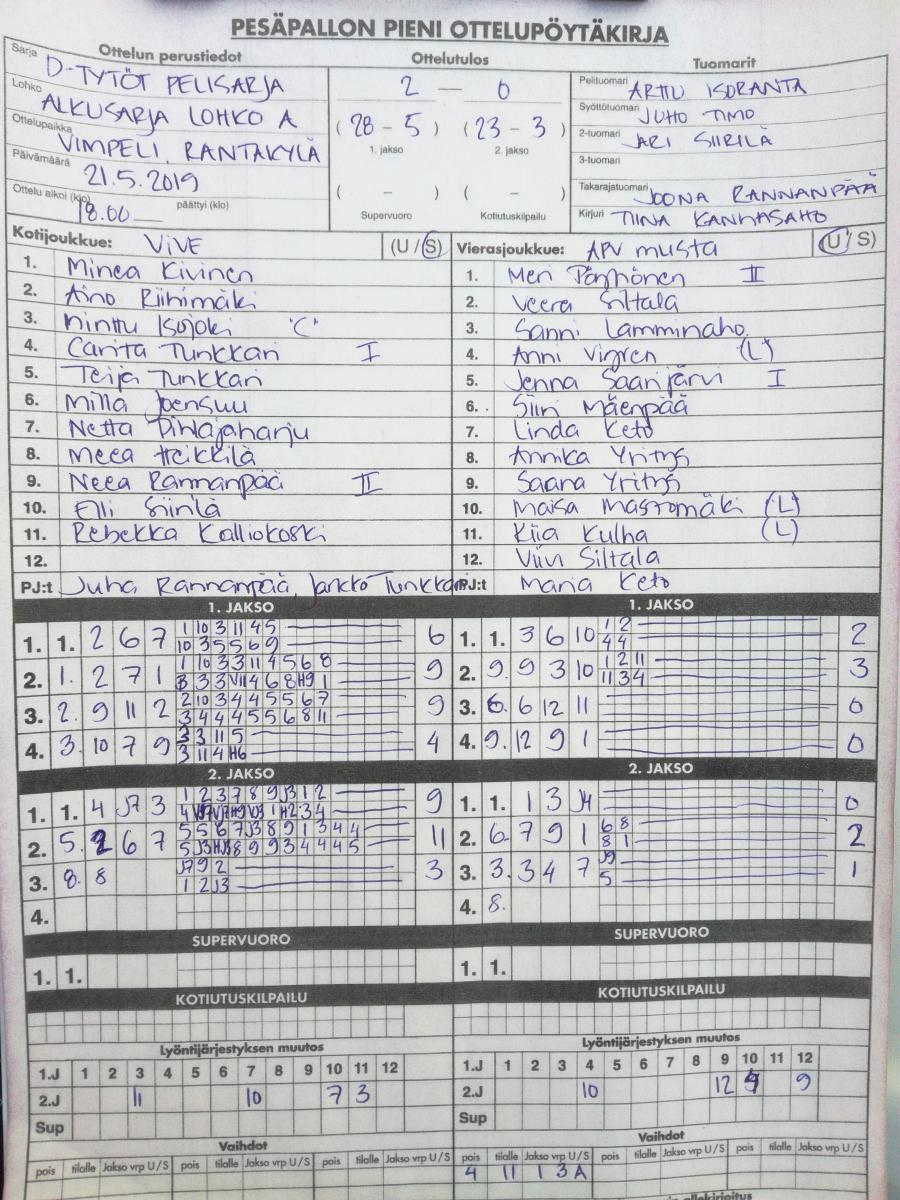 PESÄPALLON PIENI OTTELUPÖYTÄKIRJA
Ottelun perustiedot
Sarja D-TYTÖT PELISARJA
Lohko ALKUSARJA LOHKO A
Ottelupaikka VIMPELI, RANTAKYLÄ
Päivämäärä 21.5.2019
Ottelu alkoi (klo) 18.00 päättyi (klo)
Ottelutulos
2 — 0
(28 - 5) (23 - 3)
1. jakso 2. jakso
( - ) ( - )
Supervuoro Kotiutuskilpailu
Tuomarit
Pelituomari ARTTU ISORANTA
Syöttötuomari JUHO TIMO
2-tuomari JARI SIIRILÄ
3-tuomari
Takarajatuomari JOONA RANNANPÄÄ
Kirjuri TIINA KANGASAHO
Kotijoukkue: ViVE (U / S)
1. Minea Kivinen
2. Aino Riihimäki
3. Minttu Isojoki 'C'
4. Carita Tunkkari I
5. Teija Tunkkari
6. Milla Joensuu
7. Netta Pihlajaharju
8. Meea Heikkilä
9. Neea Rannanpää II
10. Elli Siirilä
11. Rebekka Kalliokoski
12.
PJ:t Juha Rannanpää, Jarkko Tunkkari
Vierasjoukkue: APV musta (U / S)
1. Meri Pöyhönen II
2. Veera Siltala
3. Sanni Lamminaho
4. Anni Vigren (L)
5. Jenna Saarijärvi I
6. Siiri Mäenpää
7. Linda Keto
8. Annika Yritys
9. Saana Yritys
10. Maisa Mastomäki (L)
11. Kiia Kulha (L)
12. Viivi Siltala
PJ:t Maria Keto
1. JAKSO
1. 1. 2 6 7 1 10 3 11 4 5 6
10 3 5 5 6 9
2. 1. 2 7 1 1 10 3 3 11 4 5 6 8 9
3. 2. 9 11 2 2 10 3 4 4 5 5 6 7 9
3 4 4 4 5 5 6 8 11
4. 3. 10 7 9 3 3 11 5 4
3 11 4 H6
1. JAKSO
1. 1. 3 6 10 1 2 2
4 4
2. 9. 9 3 10 1 2 11 3
11 3 4
3. 6. 6 12 11 0
4. 9. 12 9 1 0
2. JAKSO
1. 1. 4 J7 3 1 2 3 7 8 9 J3 1 2 9
2. 5. 2 6 7 5 5 6 7 J3 8 9 1 3 4 4 11
3. 8. 8 J7 9 2 3
1 2 J3
4.
2. JAKSO
1. 1. 1 3 J4 0
2. 6. 7 9 1 6 8 2
8 1
3. 3. 3 4 7 J9 1
5
4. 8.
SUPERVUORO
1. 1.
SUPERVUORO
1. 1.
KOTIUTUSKILPAILU
KOTIUTUSKILPAILU
Lyöntijärjestyksen muutos
1.J 1 2 3 4 5 6 7 8 9 10 11 12
2.J 11 10 7 3
Sup
Lyöntijärjestyksen muutos
1.J 1 2 3 4 5 6 7 8 9 10 11 12
2.J 10 12 4 9
Sup
Vaihdot
pois tilalle Jakso vrp U / S pois tilalle Jakso vrp U / S pois tilalle Jakso vrp U / S
Vaihdot
pois tilalle Jakso vrp U / S pois tilalle Jakso vrp U / S pois tilalle Jakso vrp U / S
4 11 1 3A